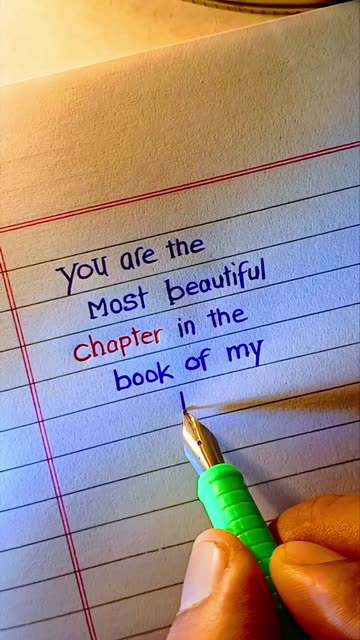 you are the
Most beautiful
chapter in the
book of my
l